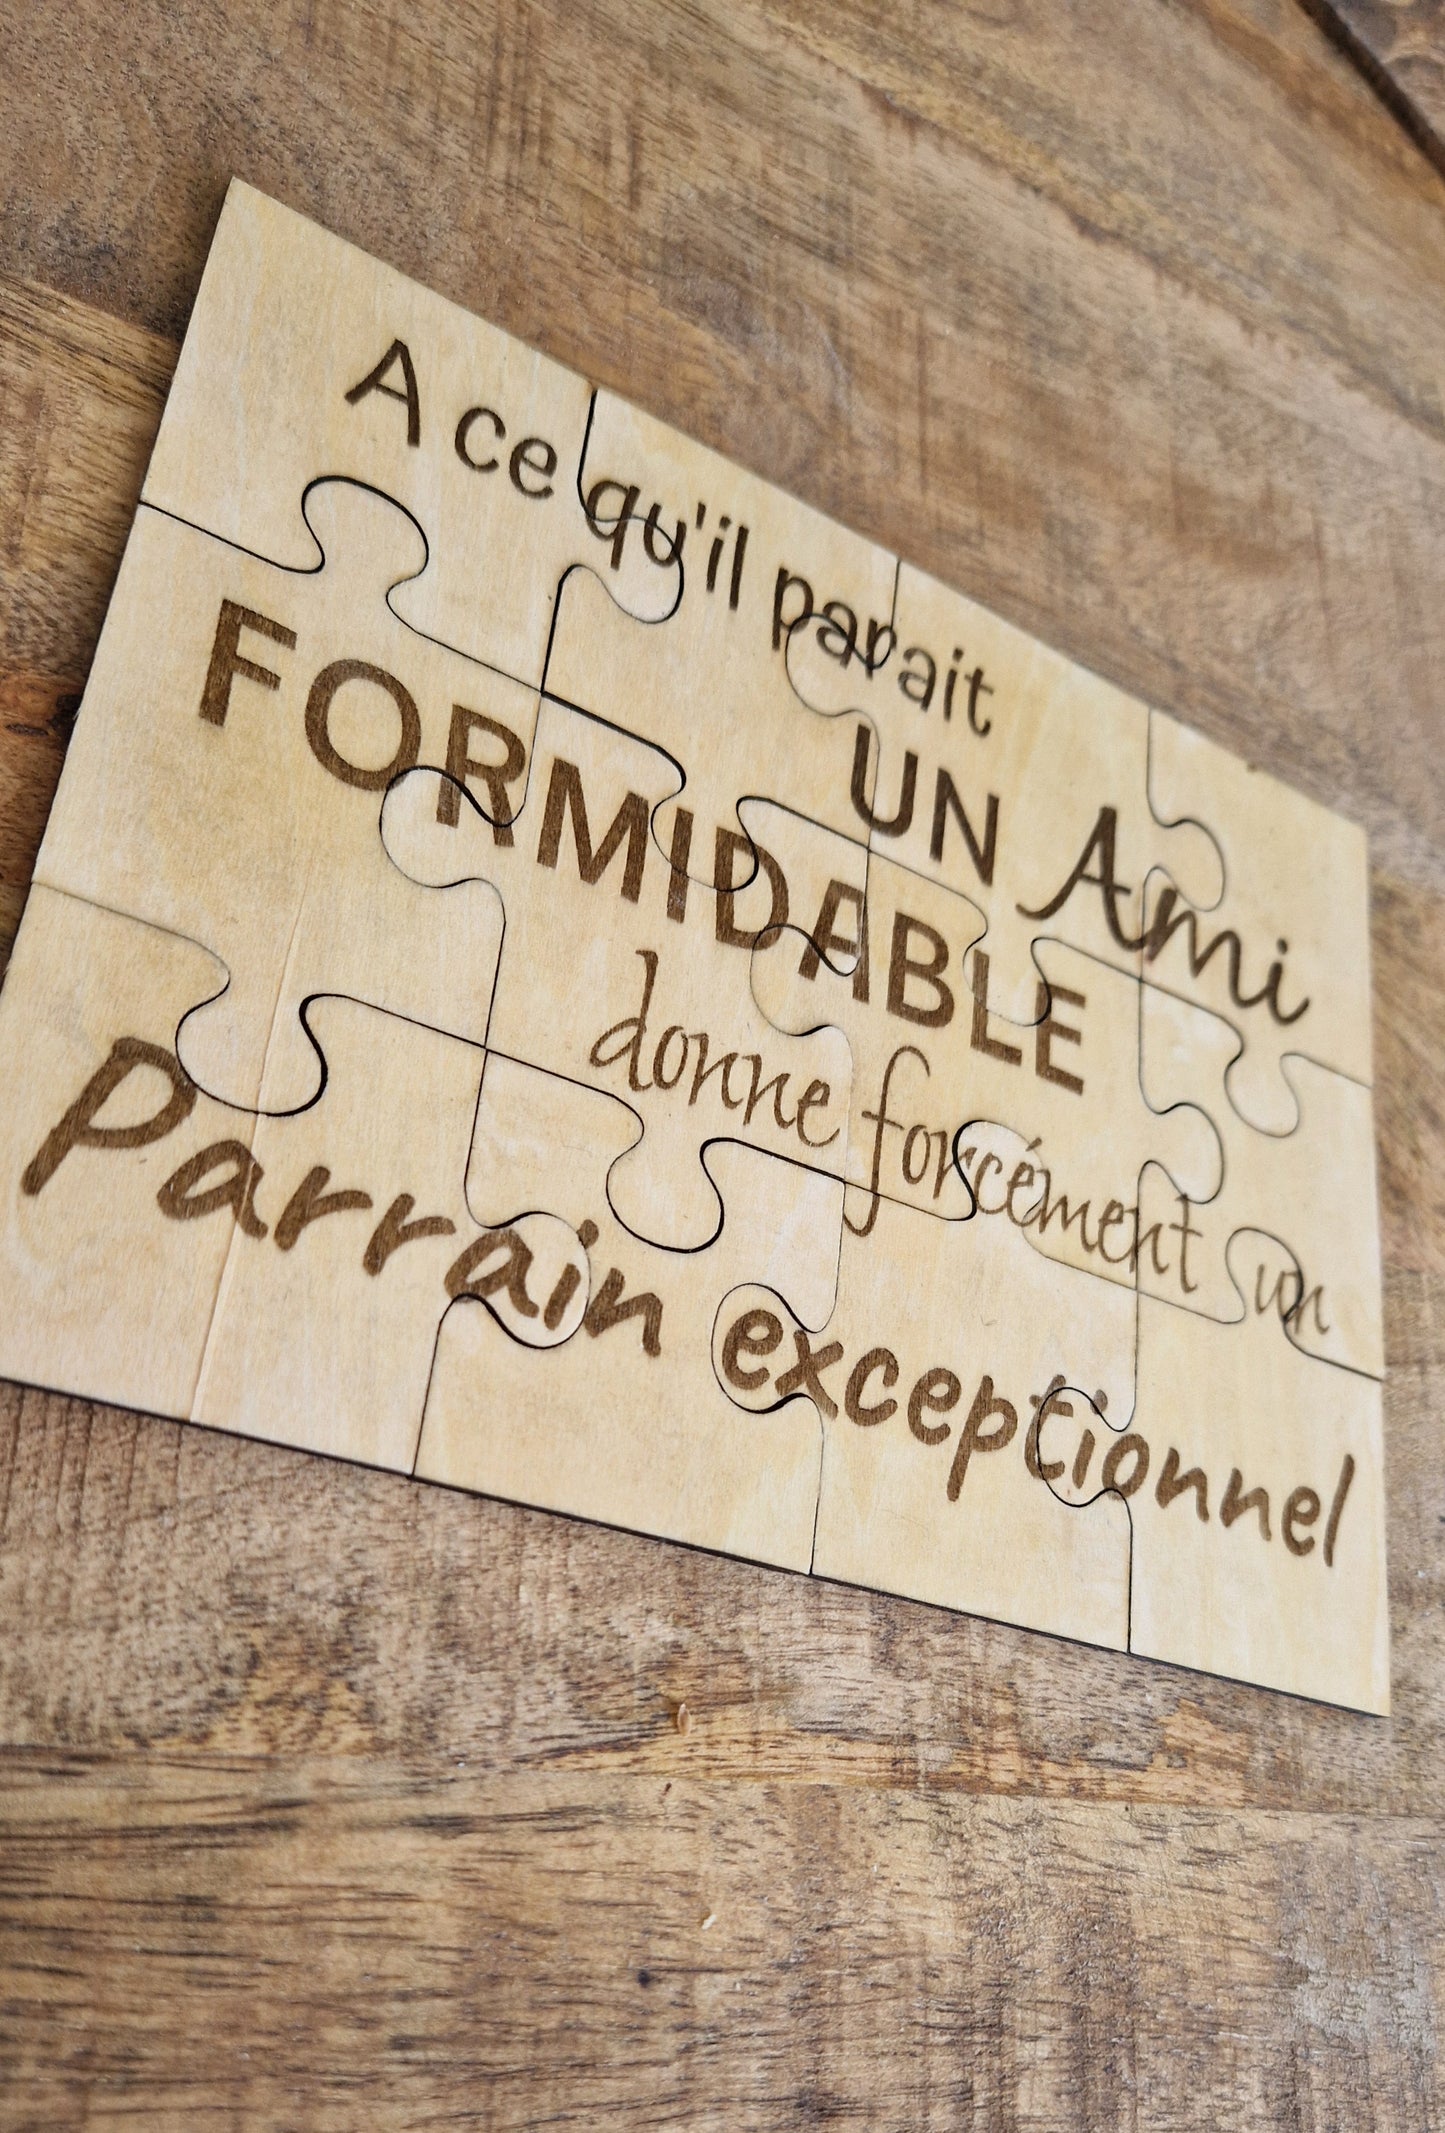 A ce qu'il parait
UN Ami
FORMIDABLE
donne forcément un
Parrain exceptionnel